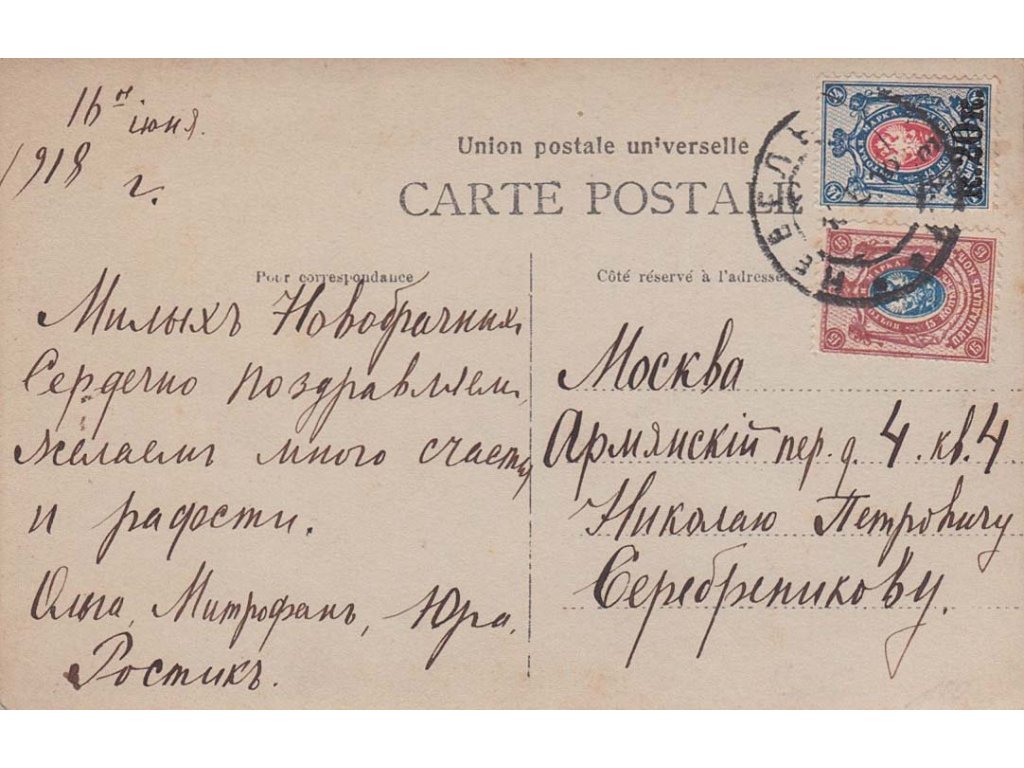 16го іюня.
1918 г.
Union postale universelle
CARTE POSTALE
Pour correspondance
Côté réservé à l'adresse
Милыхъ Новобрачных
Сердечно поздравляем,
желаемъ много счастья
и радости.
Ольга, Митрофанъ, Юра,
Ростикъ.
Москва
Армянскій пер. д. 4. кв. 4
Николаю Петровичу
Серебреникову.
к. 20 к.
МАРКА
15
15
15
ПЯТНАДЦАТЬ КОП